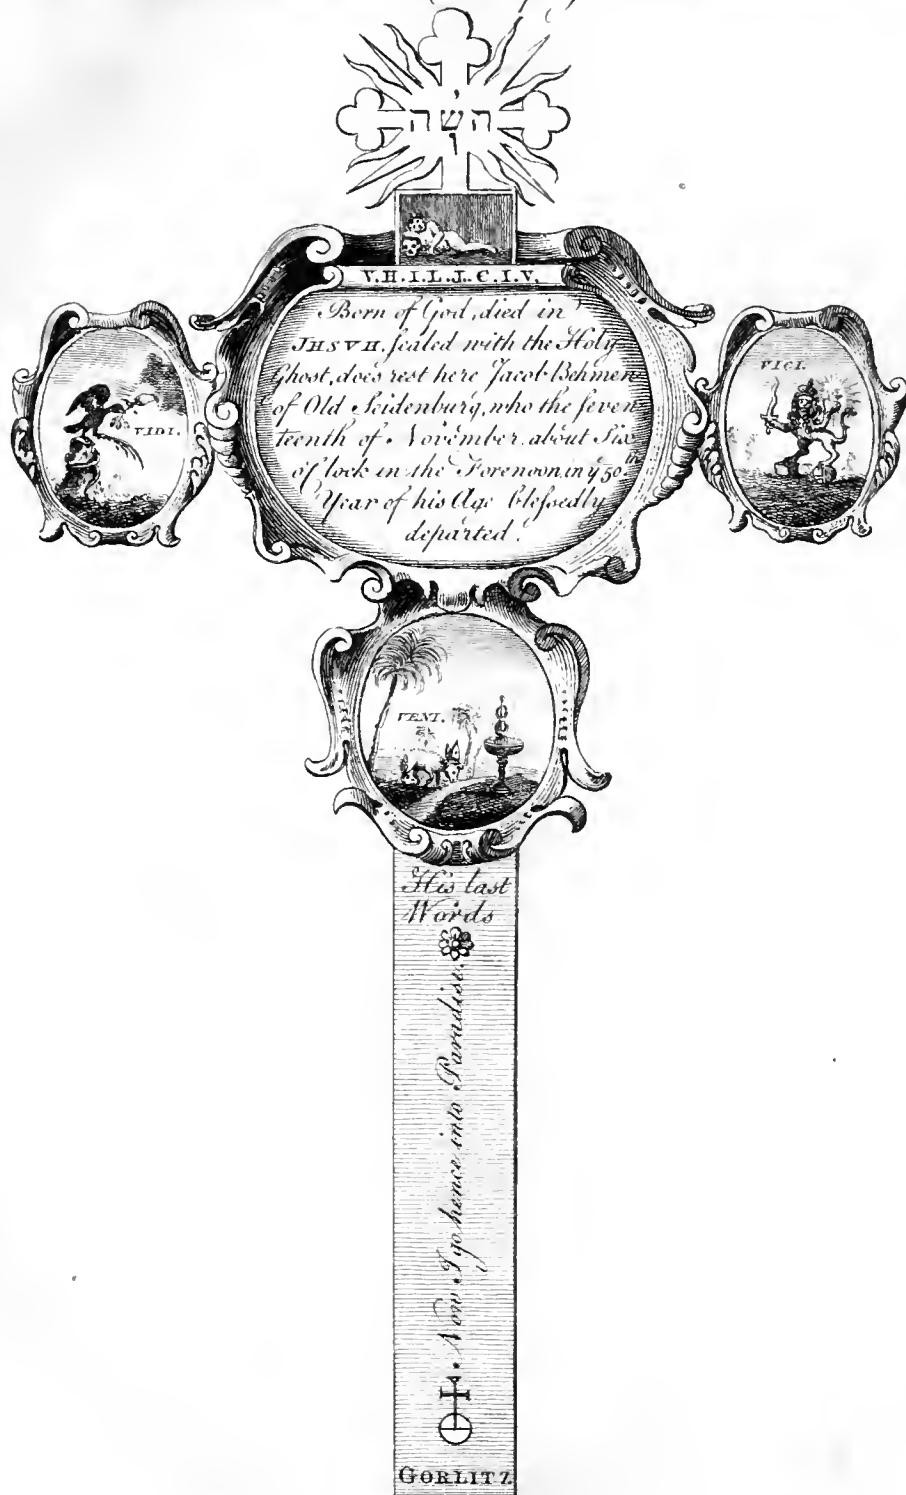 י
השה
ו
V.H.I.L.J.C.I.V.
Born of God, died in
JHSVH. sealed with the Holy
Ghost, does rest here Jacob Behmen
of Old Seidenburg, who the seven
teenth of November, about Six
o'Clock in the Forenoon, in yͤ 50ᵗʰ
Year of his Age blessedly
departed.
VIDI.
VICI.
VENI.
His last
Words
Now I go hence into Paradise.
GORLITZ